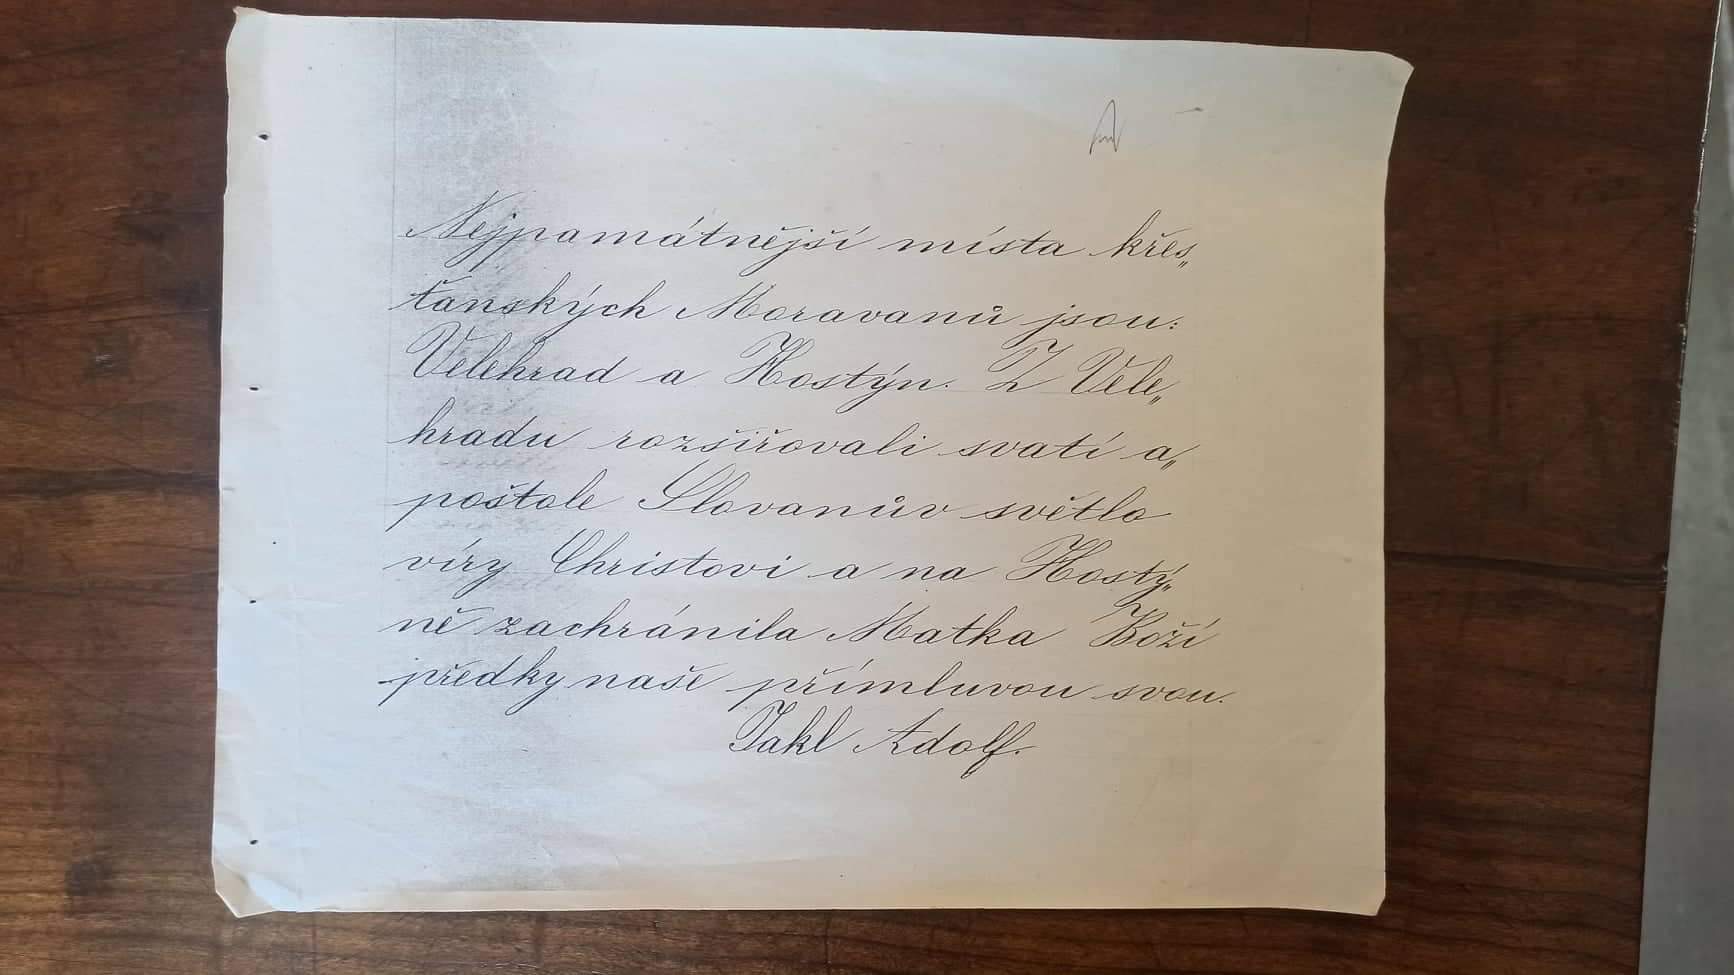 Nejpamátnější místa křes„
ťanských Moravanů jsou:
Velehrad a Hostýn. Z Vele„
hradu rozšiřovali svatí a„
poštole Slovanův světlo
víry Christovi a na Hostý„
ně zachránila Matka Boží
předky naše přímluvou svou.
Jakl Adolf.